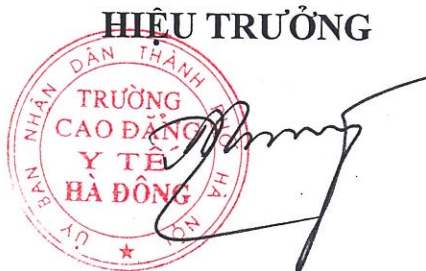 HIỆU TRƯỞNG
ỦY BAN NHÂN DÂN THÀNH PHỐ HÀ NỘI
TRƯỜNG
CAO ĐẲNG
Y TẾ
HÀ ĐÔNG